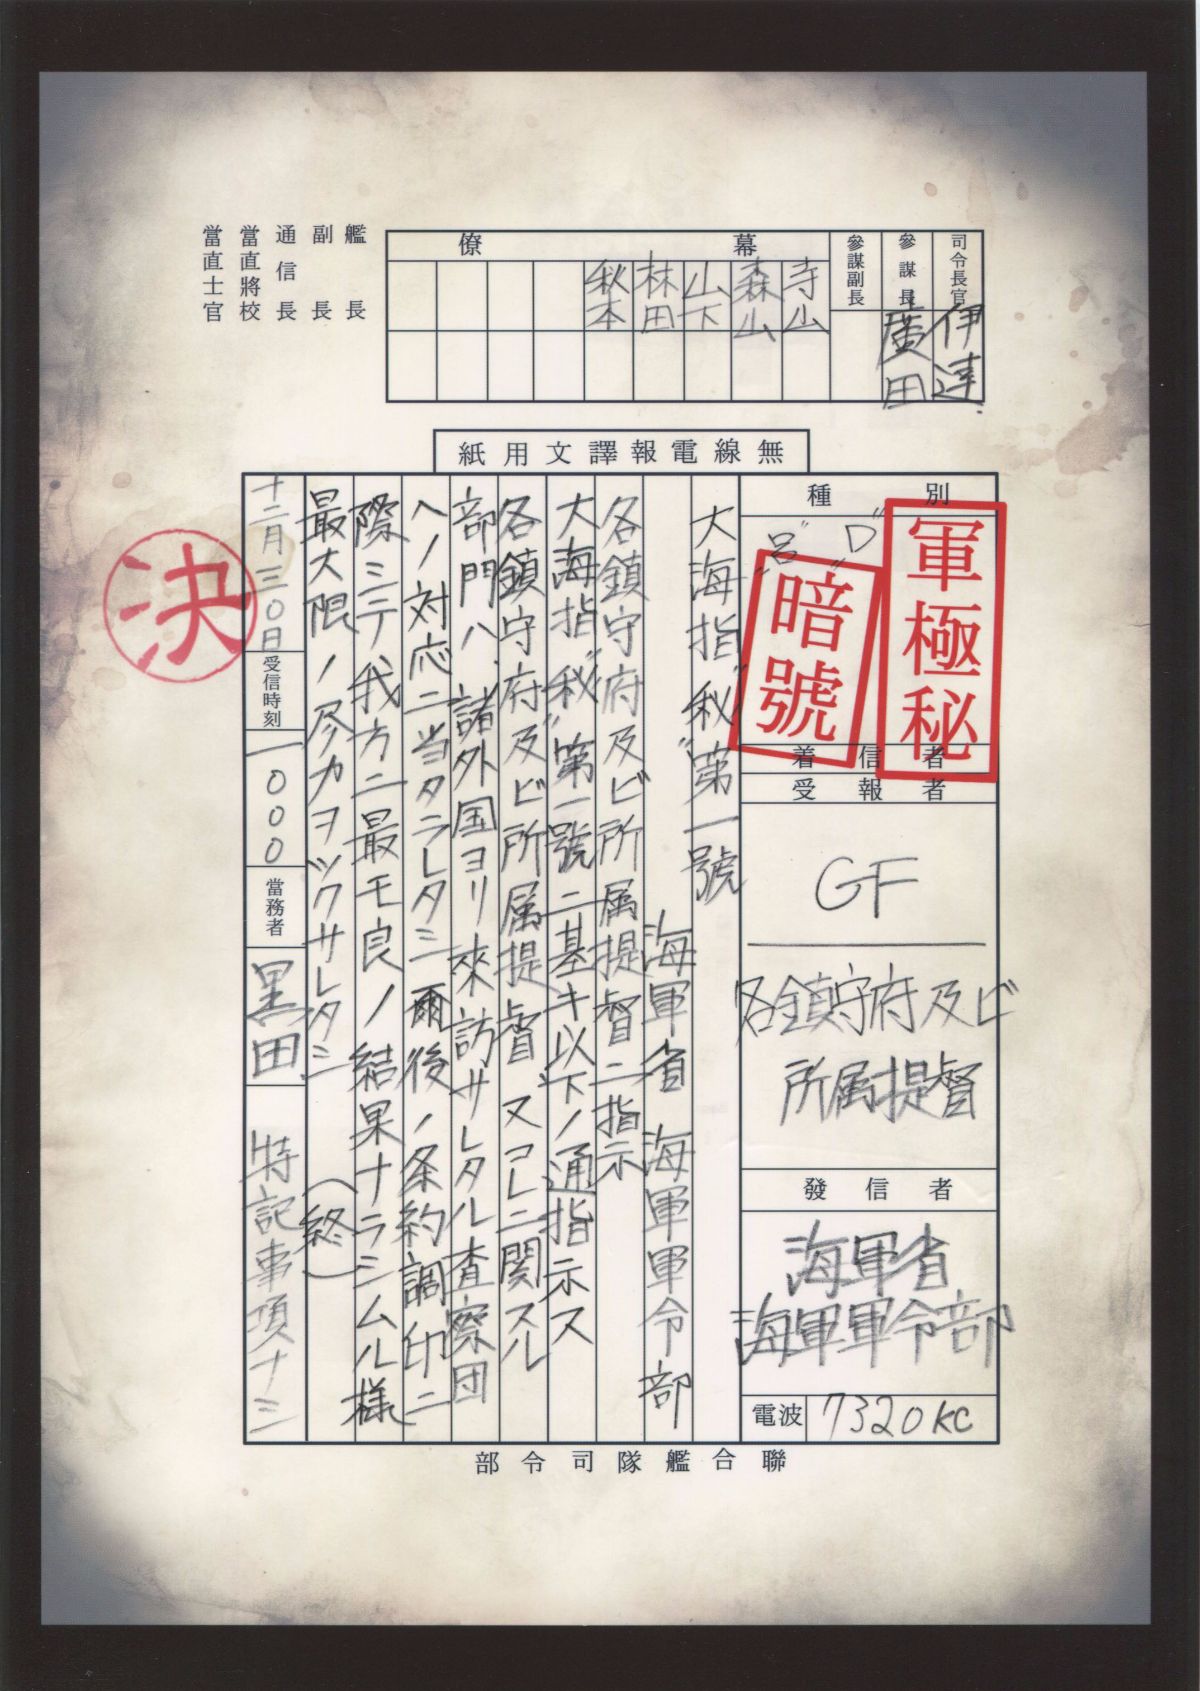 司令長官
伊達
參謀長
廣田
參謀副長
幕僚
寺山
森山
山下
林田
秋本
艦長
副長
通信長
當直將校
當直士官
無線電報譯文用紙
種別
"呂" "D"
軍極秘
暗號
着信者
受報者
GF
各鎮守府及ビ
所属提督
發信者
海軍省
海軍軍令部
電波
7320KC
大海指"秘"第一號
海軍省 海軍軍令部
各鎮守府及ビ所属提督ニ指示
大海指"秘"第一號ニ基キ以下ノ通指示ス
各鎮守府及ビ所属提督 又コレニ関スル
部門ハ 諸外国ヨリ來訪サレタル査察団
ヘノ対応ニ当タラレタシ 爾後ノ条約調印ニ
際シテ我方ニ最モ良ノ結果ナラシムル様
最大限ノ尽力ヲツクサレタシ (終)
十二月三〇日
受信時刻
一000
當務者
黒田
特記事項ナシ
決
聯合艦隊司令部